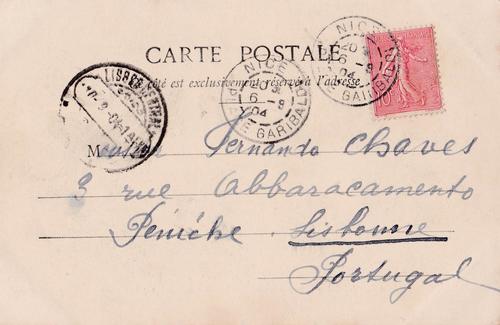 CARTE POSTALE
Ce côté est exclusivement réservé à l'adresse
NICE
PL. GARIBALDI
20
6-9
04
NICE
PL. GARIBALDI
20
6-9
04
LISBOA CENTRAL
10
M
Fernando Chaves
3 rue Abbaracamento
Peniche Lisbonne
Portugal